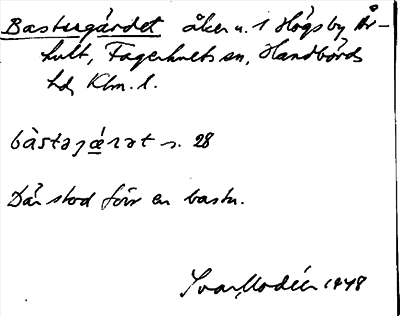 Bastugärdet åker u. 1 Högsby År-
hult, Fagerhults sn, Handbörds
hd, Klm. l.
bàstajǽrət s. 28
Där stod förr en bastu.
Ivar Modéer 1948